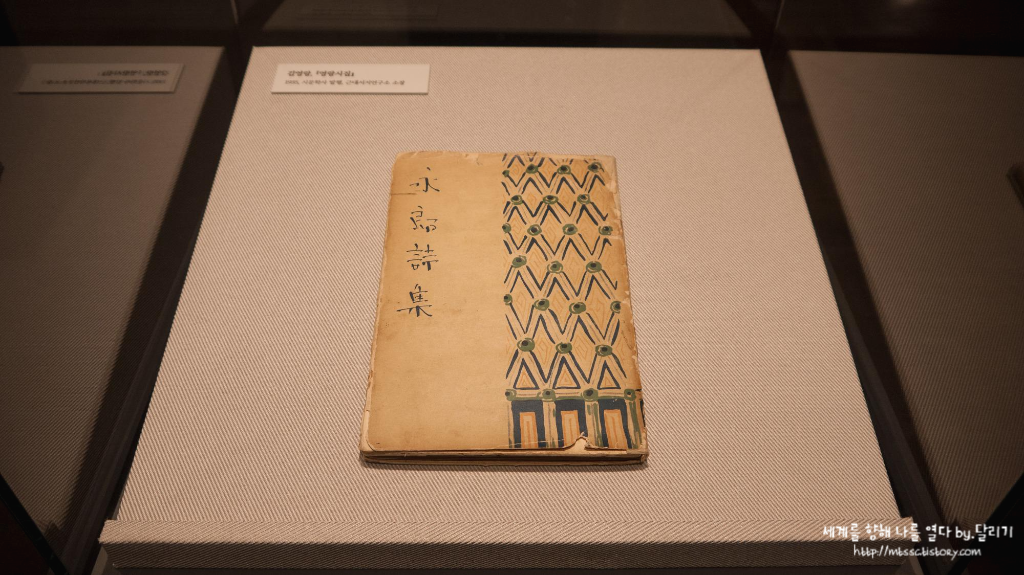 김영랑, 『영랑시집』
1935, 시문학사 발행, 근대서지연구소 소장
永
郎
詩
集
세계를 향해 나를 열다 by.달리기
http://mtssc.tistory.com